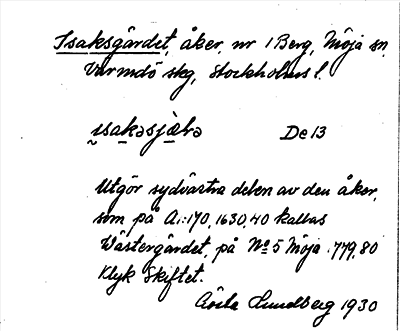 Isaksgärdet, åker, nr 1 Berg, Möja sn,
Värmdö skg, Stockholms l.
De 13
Utgör sydvästra delen av den åker,
som på A1:170, 1630,40 kallas
Västergärdet, på No 5 Möja 779,80
Klyk Skiftet.
Gösta Lundberg 1930